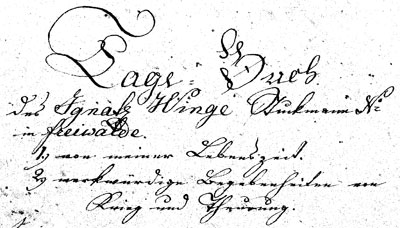 Tage-Buch
des Ignatz Winge Stuckmann No
in Freiwalde.
1, von meiner Lebenszeit.
2, merkwürdige Begebenheiten von
Krieg und Theurung.